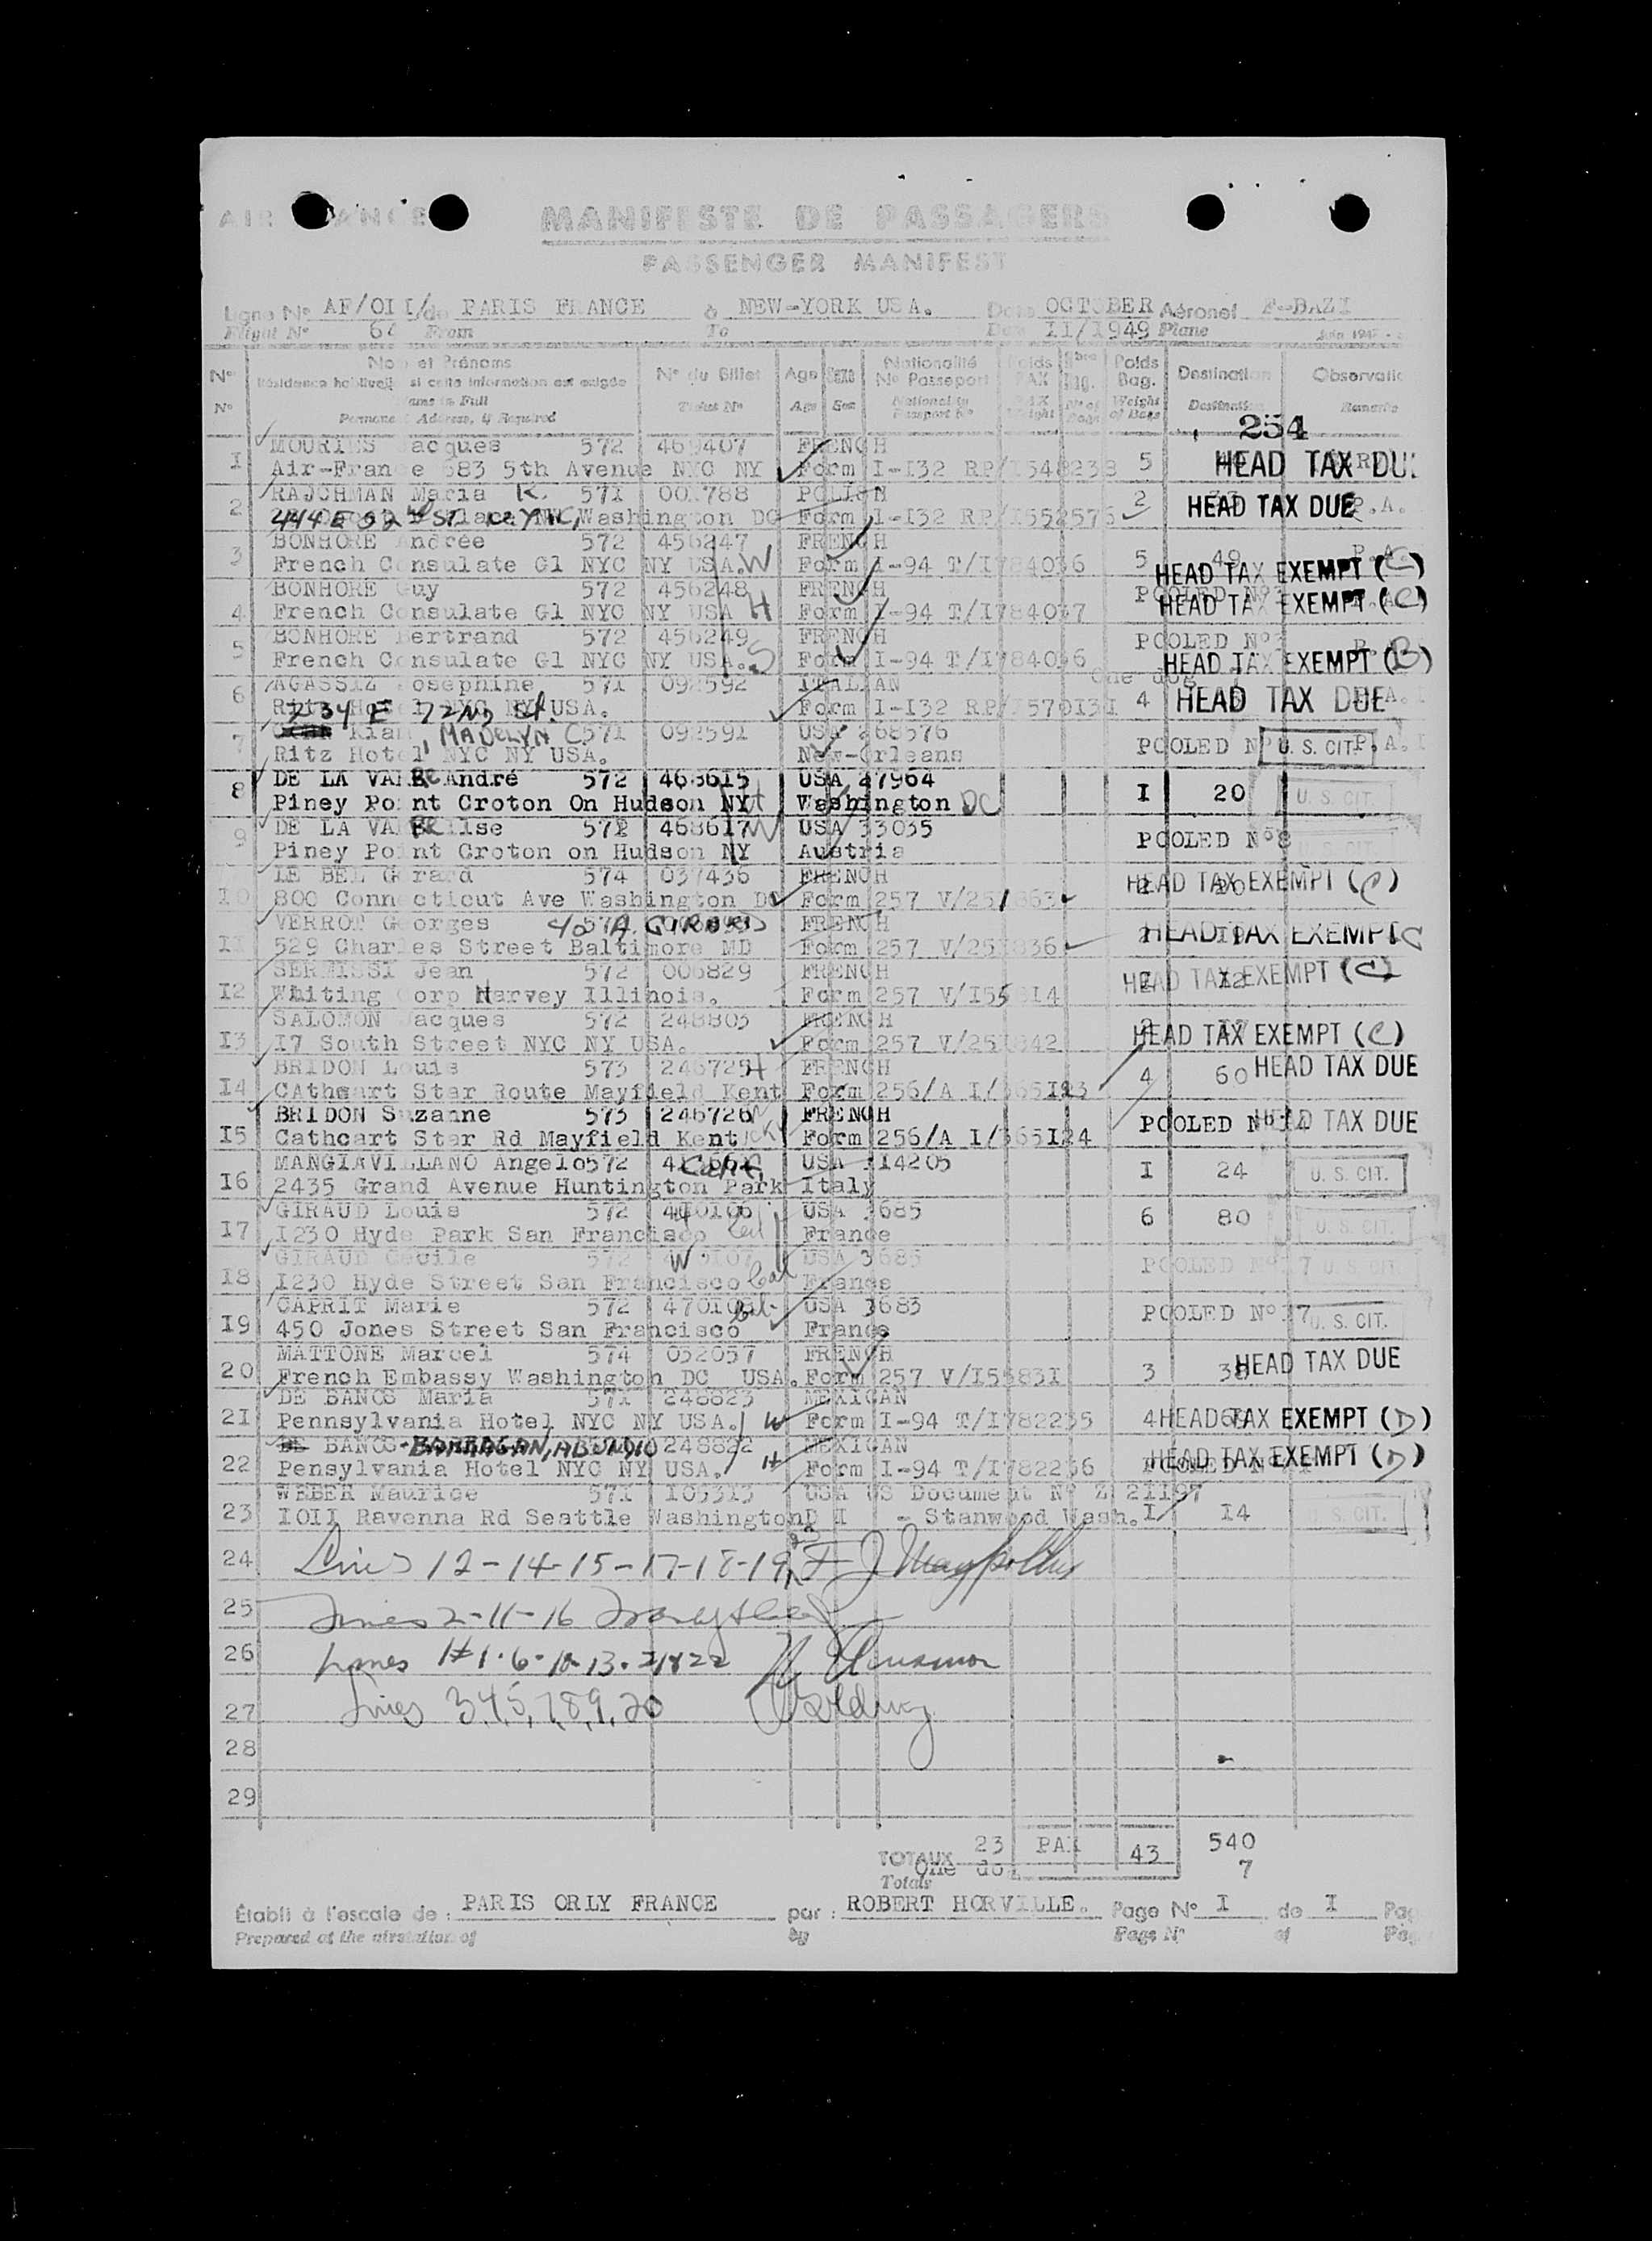 MANIFESTE DE PASSAGERS
PASSENGER MANIFEST
Ligne N° AF/OII/ de PARIS FRANCE à NEW-YORK USA. Date OCTOBER Aéronef F-BAZI
Flight N° From To II/I949 Plane
N° Nom et Prénoms N° du Billet Age Sexe Nationalité Poids Poids Destination
Résidence habituelle si cette information est exigée N° Passeport PAX Bag. Bag.
N° Name in Full Ticket N° Age Sex Nationality Weight Destination Remarks
Permanent Address, if Required Passport N° of Bags
254
I MOURIES Jacques 572 469407 FRENCH
Air-France 683 5th Avenue NYC NY Form I-I32 RP/I548238 5 HEAD TAX DUE
2 RAJCHMAN Maria K. 571 FRENCH POLISH
444 E 52nd ST NYC, Washington DC Form I-I32 RP/I552576 2 HEAD TAX DUE P.A.
3 BONHORE Andrée 572 456247 FRENCH
French Consulate Gl NYC NY USA. W Form I-94 T/I784036 5 49 HEAD TAX EXEMPT (C)
4 BONHORE Guy 572 456248 FRENCH
French Consulate Gl NYC NY USA H Form I-94 T/I784037 HEAD TAX EXEMPT (C)
5 BONHORE Bertrand 572 456249 FRENCH POOLED N°3
French Consulate Gl NYC NY USA. S Form I-94 T/I784036 HEAD TAX EXEMPT (B)
6 AGASSIZ Josephine 571 092592 ITALIAN One dog
234 E 72ND St. NYC NY USA. Form I-I32 RP/I570I3I 4 HEAD TAX DUE
7 , MADELYN C. 571 092591 USA 268576 POOLED N° U. S. CIT. P.A.
Ritz Hotel NYC NY USA. New-Orleans
8 DE LA VALBRE André 572 468615 USA 27964
Piney Point Croton On Hudson NY H Washington DC I 20 U. S. CIT.
9 DE LA VALBRE Ilse 572 468617 W USA 33035
Piney Point Croton on Hudson NY Austria POOLED N°8 U. S. CIT.
IO LE BEL Gerard 574 037436 FRENCH HEAD TAX EXEMPT (C)
800 Connecticut Ave Washington DC Form 257 V/251863
II VERROT Georges c/o A. FRENCH
529 Charles Street Baltimore MD Form 257 V/251836 HEAD TAX EXEMPT C
I2 SERMISSI Jean 572 006829 FRENCH
Whiting Corp Harvey Illinois. Form 257 V/I55814 I2 HEAD TAX EXEMPT (C)
I3 SALOMON Jacques 572 248805 FRENCH
I7 South Street NYC NY USA. Form 257 V/251842 HEAD TAX EXEMPT (C)
I4 BRIDON Louis 573 246725 H FRENCH
CAthcart Star Route Mayfield Kent Form 256/A I/365I23 4 60 HEAD TAX DUE
I5 BRIDON Suzanne 573 246726 FRENCH
Cathcart Star Rd Mayfield Kent Form 256/A I/365I24 POOLED N°I4 HEAD TAX DUE
I6 MANGIAVILLANO Angelo 572 Calif. USA 114205
2435 Grand Avenue Huntington Park Italy I 24 U. S. CIT.
I7 GIRAUD Louis 572 USA 3685
I230 Hyde Park San Francisco Cal H France 6 80 U. S. CIT.
I8 GIRAUD Cecile 572 W USA 3685
I230 Hyde Street San Francisco Cal France POOLED N°I7 U. S. CIT.
I9 CAPRIT Marie 572 Cal. USA 3683
450 Jones Street San Francisco France POOLED N°I7 U. S. CIT.
20 MATTONE Marcel 574 052057 FRENCH
French Embassy Washington DC USA. Form 257 V/I5583I 3 38 HEAD TAX DUE
2I DE BANOS Maria 571 248823 MEXICAN
Pennsylvania Hotel NYC NY USA. W Form I-94 T/I782235 4 HEAD TAX EXEMPT (D)
22 DE BANOS-BARRAGAN, ABUNDIO 248822 MEXICAN
Pensylvania Hotel NYC NY USA. H Form I-94 T/I782236 HEAD TAX EXEMPT (D)
23 WEBER Maurice 571 105313 USA US Document N° Z 21197
IOII Ravenna Rd Seattle Washington - Stanwood Wash. I I4 U. S. CIT.
24 Lines 12-14-15-17-18-19
25 Lines 2-11-16
26 Lines #1.6.10.13.21&22
27 Lines 3,4,5,7,8,9,20
28
29
TOTAUX 23 PAX 43 540
Totals One dog 7
Établi à l'escale de : PARIS ORLY FRANCE par : ROBERT HORVILLE. Page N° I de I
Prepared at the airstation of by Page N° of